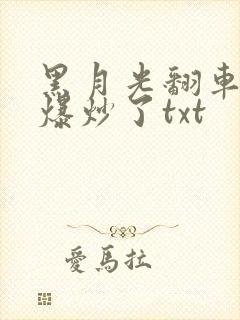 黑月光翻車
爆炒了txt
愛馬拉